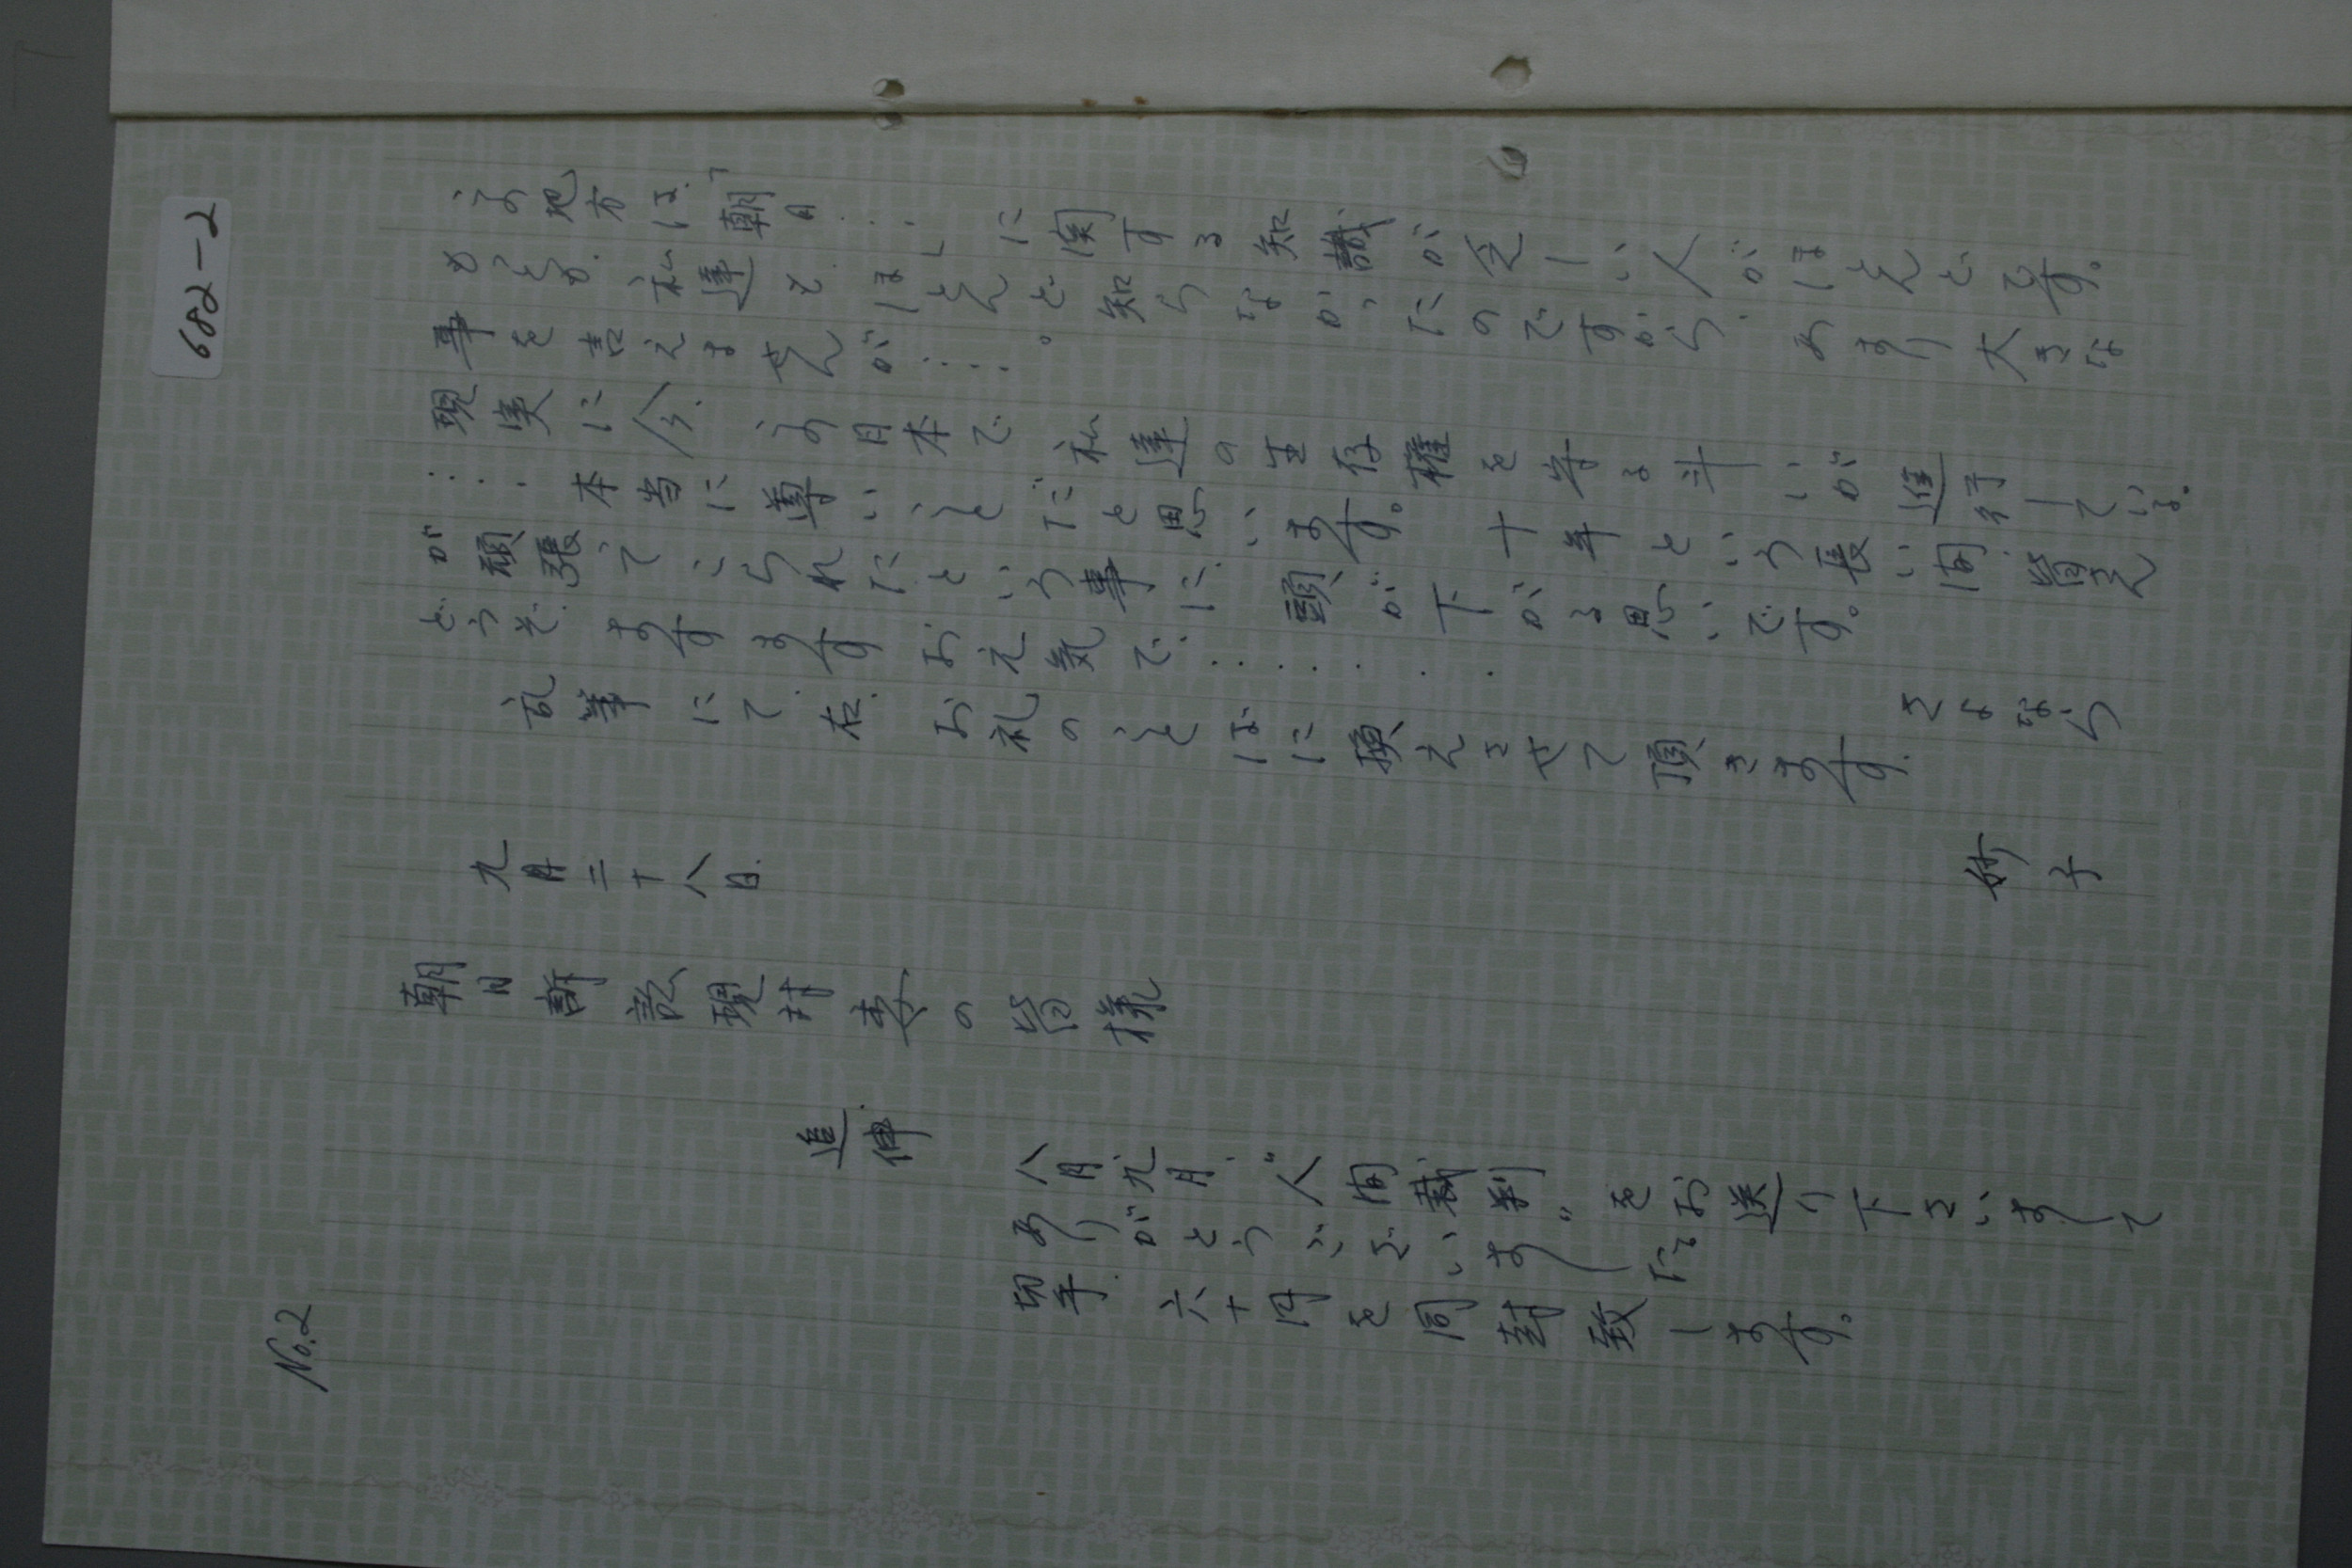 682-2
この地方は、「朝日……」に関する知識が乏しい人がほとんどです。
もっとも、私達も、ほとんど知らなかったのですから、あまり大きな
事を言えませんが……。
現実に今、この日本で、私達の生存権を守る斗いが進行している。
……本当に尊いことだと思います。十年という長い間、皆さん
が頑張ってこられたという事に、頭が下がる思いです。
どうぞ、ますますお元気で……
さよなら
乱筆にて、右、お礼のことばに換えさせて頂きます。
九月二十八日
妙子
朝日訴訟現対委の皆様
追伸
八月、九月、“人間裁判”をお送り下さいまして
ありがとうございました。
切手、六十円を同封致します。
No.2